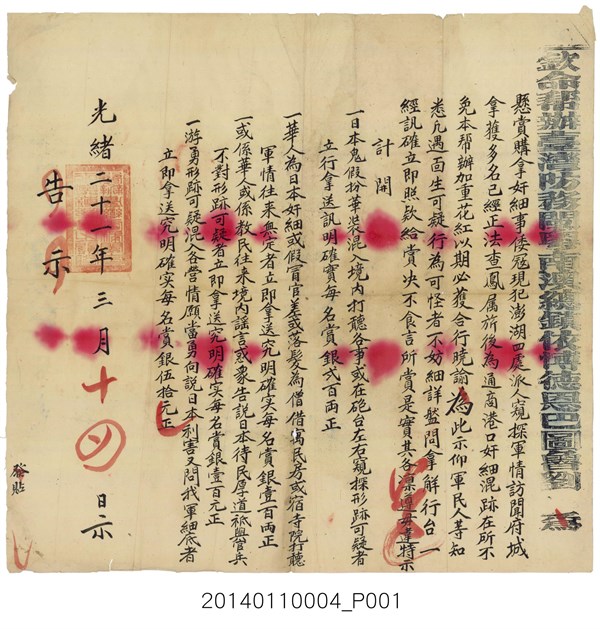 欽命幫辦臺灣防務閩粵南澳總鎮依博德恩巴圖魯劉　為
懸賞購拿奸細事倭寇現犯澎湖四處派人窺探軍情訪聞府城
拿獲多名已經正法查鳳属旂後為通商港口奸細混跡在所不
免本帮辦加重花紅以期必獲合行曉諭為此示仰軍民人等知
悉凡遇面生可疑行為可怪者不妨細詳盤問拿解行台一
經訊確立即照欵給賞决不食言所賞是實其各凛遵毋違特示
計開
一日本鬼假扮華裝混入境内打聽各事或在砲台左右窺探形跡可疑者
立行拿送訊明確實每名賞銀弍百両正
一華人為日本奸細或假冒官差或落髮為僧借寓民房或宿寺院打聽
軍情往来無定者立即拿送究明確实每名賞銀壹百両正
一或係華人或係教民往来境内謠言惑衆告說日本待民厚道祗與官兵
不對形跡可疑者立即拿送究明確实每名賞銀壹百元正
一游勇形跡可疑混入各營情愿當勇向説日本利害又問我軍細底者
立即拿送究明確实每名賞銀伍拾元正
光緒二十一年三月十四日示
告示
發貼
20140110004_P001